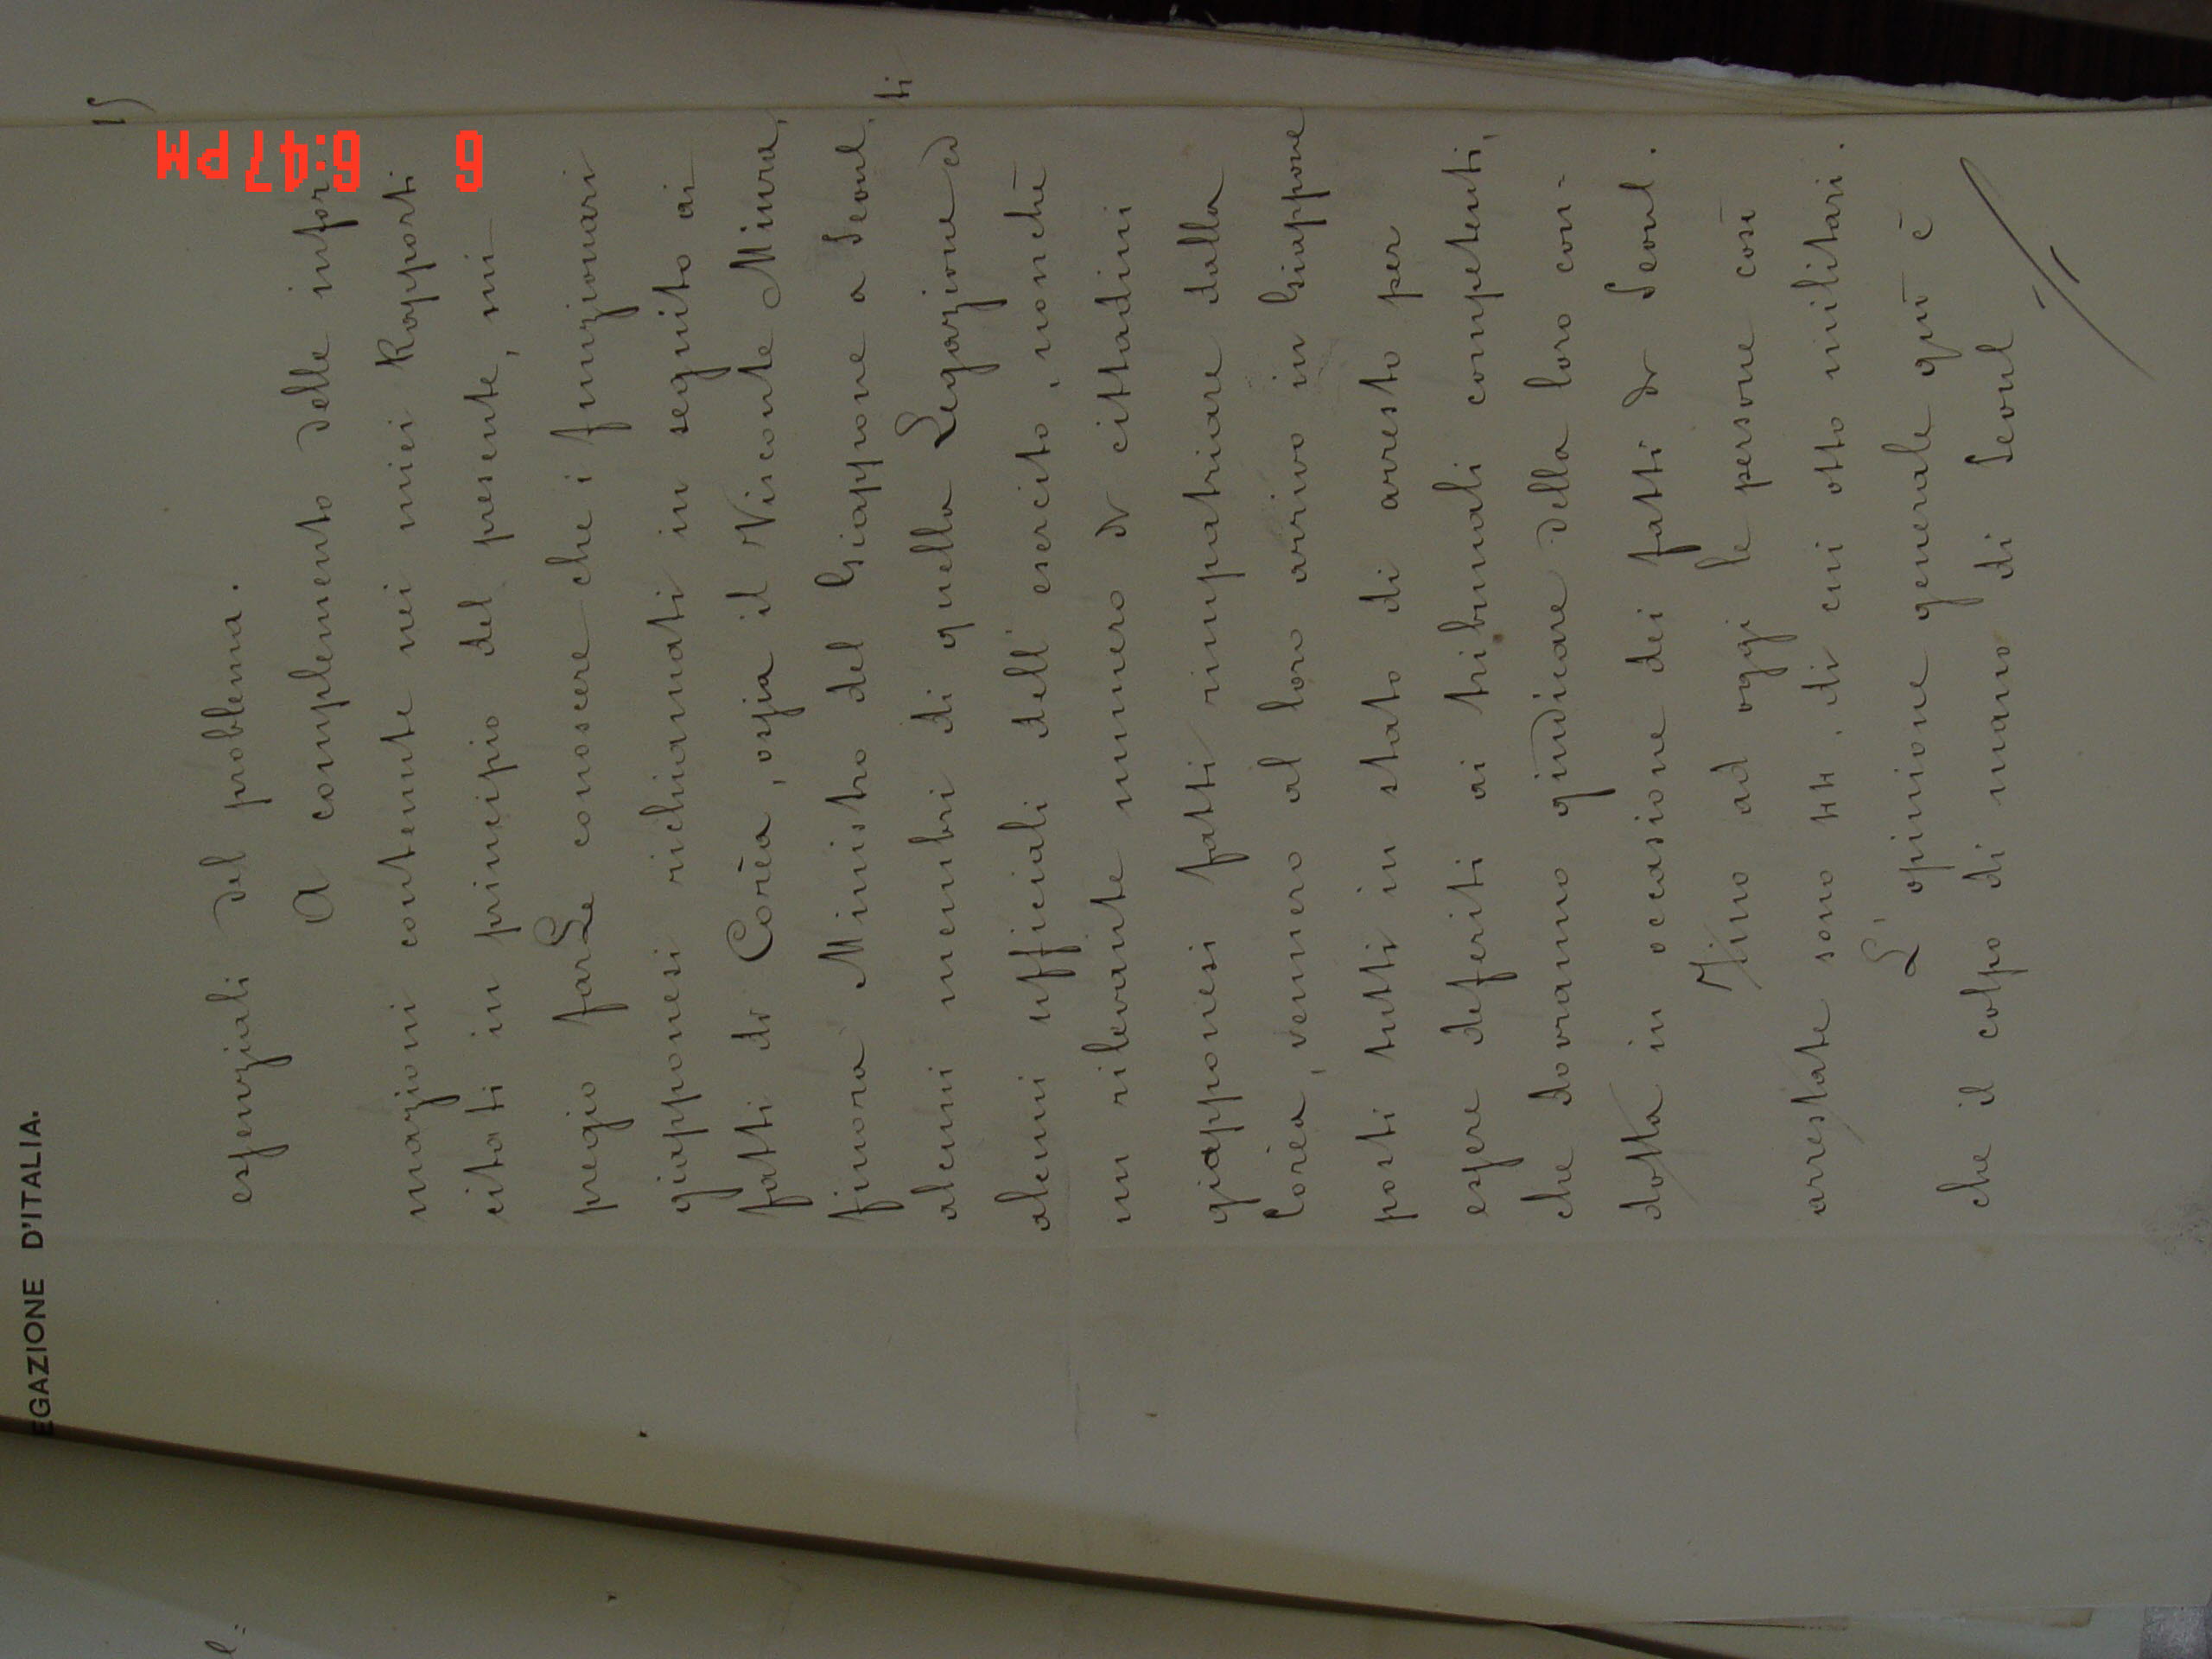 EGAZIONE D'ITALIA.
essenziali del problema.
A complemento delle infor
mazioni contenute nei miei Rapporti
citati in principio del presente, mi
pregio farLe conoscere che i funzionari
giapponesi richiamati in seguito ai
fatti di Corèa, ossia il Visconte Miura,
finora Ministro del Giappone a Seoul,
alcuni membri di quella Legazione ed
alcuni ufficiali dell'esercito, nonchè
un rilevante numero di cittadini
giapponesi fatti rimpatriare dalla
Corèa, vennero al loro arrivo in Giappone
posti tutti in stato di arresto per
essere deferiti ai tribunali competenti,
che dovranno giudicare della loro con-
dotta in occasione dei fatti di Seoul.
Fino ad oggi le persone così
arrestate sono 44. di cui otto militari.
L'opinione generale quì è
che il colpo di mano di Seoul
15
ti
6:47PM
6